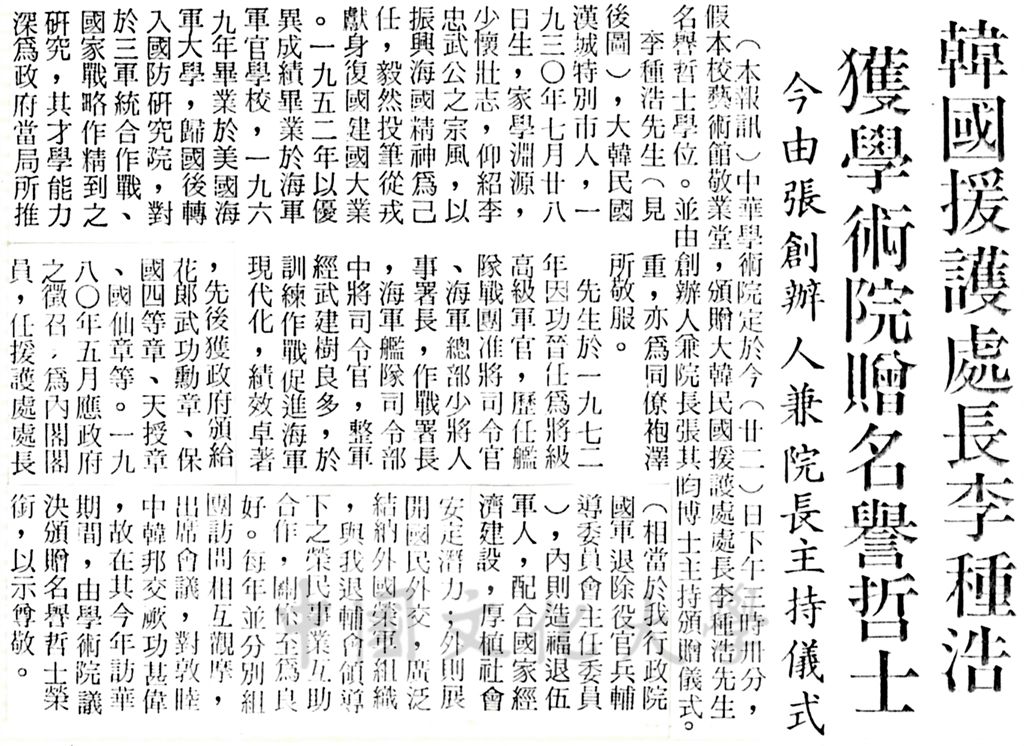 韓國援護處長李種浩
獲學術院贈名譽哲士
今由張創辦人兼院長主持儀式
（本報訊）中華學術院定於今（廿二）日下午三時卅分，
假本校藝術館敬業堂，頒贈大韓民國援護處處長李種浩先生
名譽哲士學位。並由創辦人兼院長張其昀博士主持頒贈儀式。
李種浩先生（見
後圖），大韓民國
漢城特別市人，一
九三〇年七月廿八
日生，家學淵源，
少懷壯志，仰紹李
忠武公之宗風，以
振興海國精神爲己
任，毅然投筆從戎
獻身復國建國大業
。一九五二年以優
異成績畢業於海軍
軍官學校，一九六
九年畢業於美國海
軍大學，歸國後轉
入國防研究院，對
於三軍統合作戰、
國家戰略作精到之
研究，其才學能力
深爲政府當局所推
重，亦爲同僚袍澤
所敬服。
先生於一九七二
年因功晉任爲將級
高級軍官，歷任艦
隊戰團准將司令官
、海軍總部少將人
事署長，作戰署長
，海軍艦隊司令部
中將司令官，整軍
經武建樹良多，於
訓練作戰促進海軍
現代化，績效卓著
，先後獲政府頒給
花郎武功勳章、保
國四等章、天授章
、國仙章等。一九
八〇年五月應政府
之徵召，爲內閣閣
員，任援護處處長
（相當於我行政院
國軍退除役官兵輔
導委員會主任委員
），內則造福退伍
軍人，配合國家經
濟建設，厚植社會
安定潛力；外則展
開國民外交，廣泛
結納外國榮軍組織
，與我退輔會領導
下之榮民事業互助
合作，關懷至爲良
好。每年並分別組
團訪問相互觀摩，
出席會議，對敦睦
中韓邦交厥功甚偉
，故在其今年訪華
期間，由學術院議
決頒贈名譽哲士榮
銜，以示尊敬。
中國文化大學